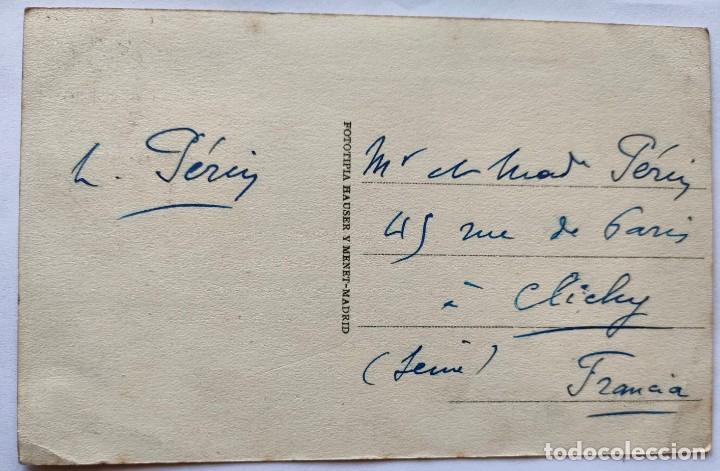 L. Périn
FOTOTIPIA HAUSER Y MENET-MADRID
Mr et Made Périn
45 rue de Paris
à Clichy
(Seine) Francia
todocoleccion
todocoleccion.net